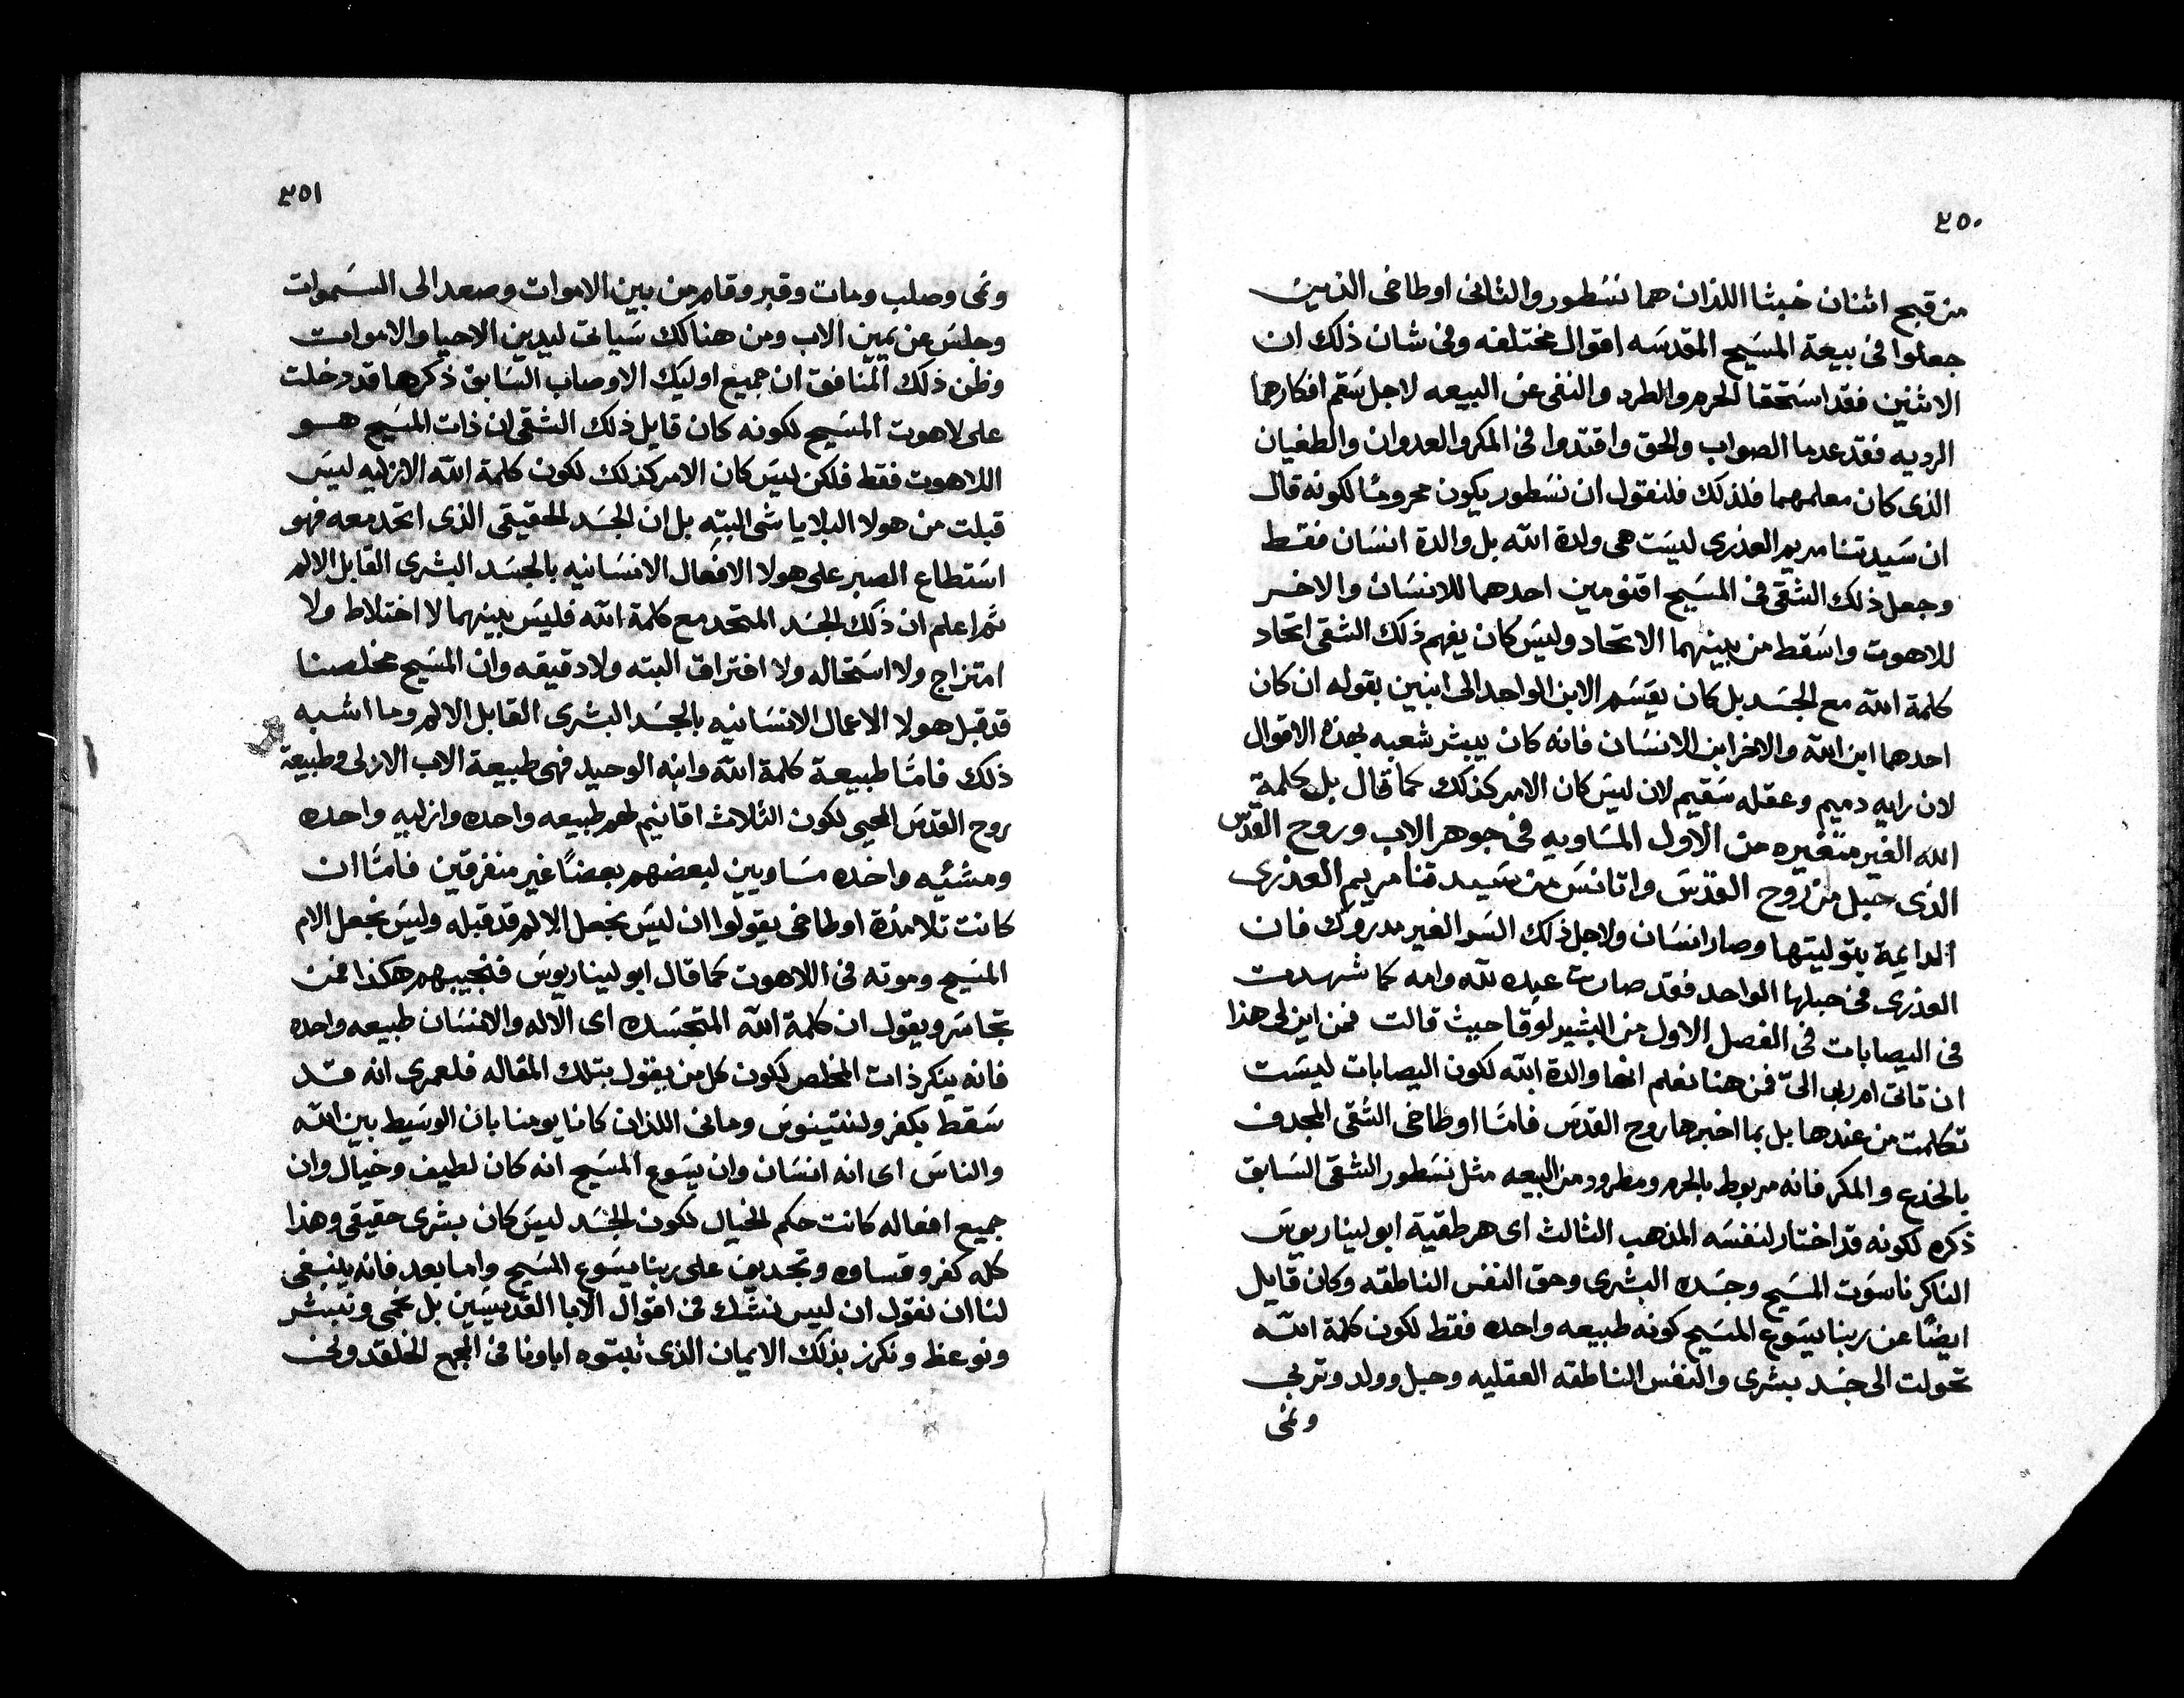 ٢٥٠
من قبح اثنان خبثا اللذان هما نسطور والثانى اوطاخى الذين
جعلوا فى بيعة المسيح المقدسه اقوال مختلفه وفى شان ذلك ان
الاثنين فقد استحقا الحرم والطرد والنفى عن البيعه لاجل سقم افكارهما
الرديه فقد عدما الصواب والحق واقتدوا فى المكر والعدوان والطغيان
الذى كان معلمهما فلذلك فلنقول ان نسطور يكون محرومًا لكونه قال
ان سيدتنا مريم العذرى ليست هى ولدة الله بل والدة انسان فقط
وجعل ذلك الشقى فى المسيح اقنومين احدهما للانسان والاخر
للاهوت واسقط من بينهما الاتحاد وليس كان يفهم ذلك الشقى اتحاد
كلمة الله مع الجسد بل كان يقسم الابن الواحد الى ابنين بقوله ان كان
احدهما ابن الله والاخر ابن الانسان فانه كان يبشر شعبه بهذه الاقوال
لان رايه دميم وعقله سقيم لان ليس كان الامر كذلك كما قال بل كلمة
الله الغير متغيره من الاول المساويه فى جوهر الاب وروح القدس
الذى حبل من روح القدس واتانس من سيدتنا مريم العذرى
الدايمة بتوليتها وصار انسان ولاجل ذلك السر الغير مدروك فان
العذرى فى حبلها الواحد فقد صارت عبده لله وامه كما شهدت
فى اليصابات فى الفصل الاول من البشير لوقا حيث قالت فمن اين لى هذا
ان تاتى ام ربى الىّ فمن هنا نعلم انها والدة الله لكون اليصابات ليست
تكلمت من عندها بل بما اخبرها روح القدس فامّا اوطاخى الشقى المجدف
بالخدع والمكر فانه مربوط بالحرم ومطرود من البيعه مثل نسطور الشقى السابق
ذكره لكونه قد اختار لنفسه المذهب الثالث اى هرطقية ابوليناريوس
الناكر ناسوت المسيح وجسده البشرى وحق النفس الناطقه وكان قايل
ايضًا عن ربنا يسوع المسيح كونه طبيعه واحده فقط لكون كلمة الله
تحولت الى جسد بشرى والنفس الناطقه العقليه وحبل وولد وتربى
ونمى
٢٥١
ونمى وصلب ومات وقبر وقام من بين الاموات وصعد الى السموات
وجلس عن يمين الاب ومن هنالك سياتى ليدين الاحيا والاموات
وظن ذلك المنافق ان جميع اوليك الاوصاب السابق ذكرها قد دخلت
على لاهوت المسيح لكونه كان قايل ذلك الشقى ان ذات المسيح هو
اللاهوت فقط فلكن ليس كان الامر كذلك لكون كلمة الله الازليه ليس
قبلت من هولا البلايا شى البته بل ان الجسد الحقيقى الذى اتحد معه فهو
استطاع الصبر على هولا الافعال الانسانيه بالجسد البشرى القابل الالم
ثم اعلم ان ذلك الجسد المتحد مع كلمة الله فليس بينهما لا اختلاط ولا
امتزاج ولا استحاله ولا افتراق البته ولا دقيقه وان المسيح مخلصنا
قد قبل هولا الاعمال الانسانيه بالجسد البشرى القابل الالم وما اشبه
ذلك فامّا طبيعة كلمة الله وابنه الوحيد فهى طبيعة الاب الازلى وطبيعة
روح القدس المحيى لكون الثلاث اقانيم لهم طبيعه واحده وازليه واحده
ومشئيه واحده مساويين لبعضهم بعضًا غير منفرقين فامّا ان
كانت تلامذة اوطاخى يقولوا ان ليس نجعل الالم قد قبله وليس نجعل الام
المسيح وموته فى اللاهوت كما قال ابوليناريوس فنجيبهم هكذا فمن
تجاسر ويقول ان كلمة الله المتجسده اى الاله والانسان طبيعه واحده
فانه ينكر ذات المخلص لكون كل من يقول بتلك المقاله فلعمرى انه قد
سقط بكفر ولنتينوس ومانى اللذان كانا يومنا بان الوسيط بين الله
والناس اى انه انسان وان يسوع المسيح انه كان لطيف وخيال وان
جميع افعاله كانت حكم الخيال لكون الجسد ليس كان بشرى حقيقى وهذا
كله كفر وقساوه وتجديف على ربنا يسوع المسيح واما بعد فانه ينبغى
لنا ان نقول ان ليس نشك فى اقوال الابا القديسين بل نحمى ونبشر
ونوعظ ونكرز بذلك الايمان الذى ثبتوه اباونا فى المجمع الخلقدونى